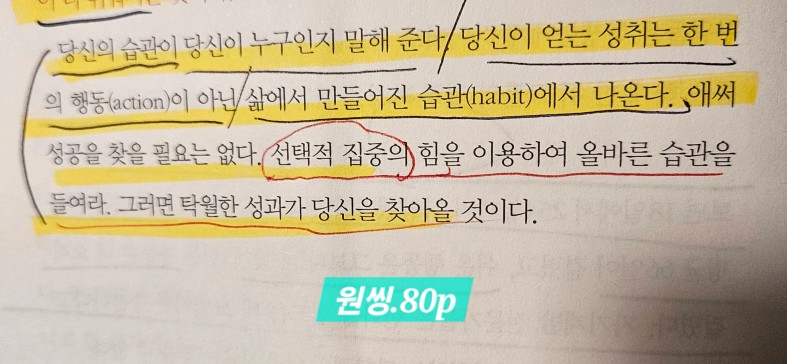 당신의 습관이 당신이 누구인지 말해 준다. 당신이 얻는 성취는 한 번
의 행동(action)이 아닌 삶에서 만들어진 습관(habit)에서 나온다. 애써
성공을 찾을 필요는 없다. 선택적 집중의 힘을 이용하여 올바른 습관을
들여라. 그러면 탁월한 성과가 당신을 찾아올 것이다.
원씽.80p